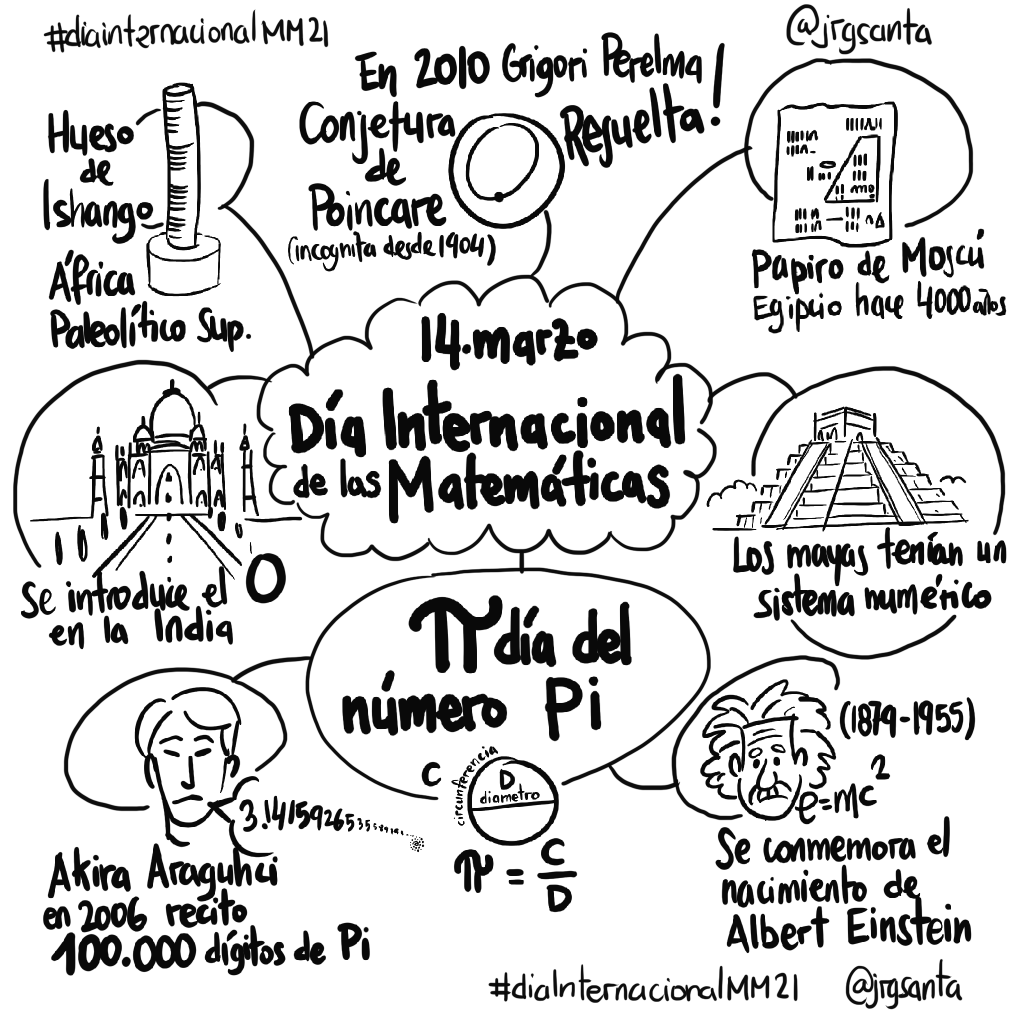 #diainternacionalMM21
@jrgsanta
En 2010 Grigori Perelma
Resuelta!
Conjetura
de
Poincare
(incognita desde 1904)
Hueso
de
Ishango
África
Paleolítico Sup.
Papiro de Moscú
Egipcio hace 4000 años
14.marzo
Día Internacional
de las Matemáticas
Se introduce el 0
en la India
Los mayas tenían un
sistema numérico
π día del
número Pi
C
circunferencia
D
diametro
π = C/D
3.14159265
Akira Araguhci
en 2006 recito
100.000 dígitos de Pi
(1879-1955)
e=mc²
Se conmemora el
nacimiento de
Albert Einstein
#diaInternacionalMM21
@jrgsanta